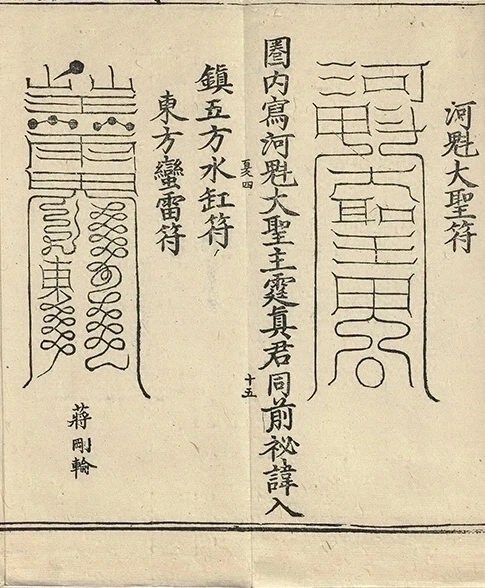 河魁大聖符
圈内寫河魁大聖主霆真君同前祕諱入
十五
鎮五方水缸符
東方蠻雷符
蔣剛輪